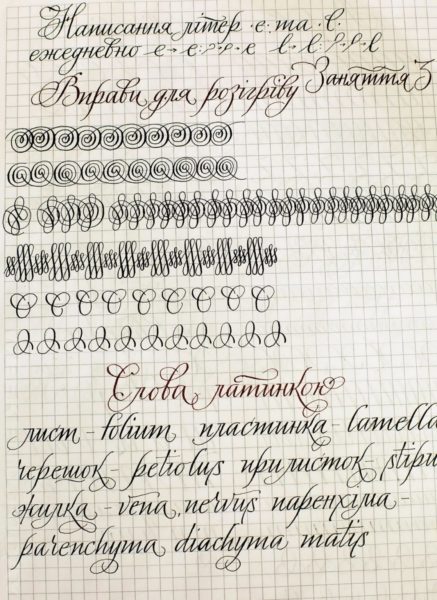 Написання літер · е · та · в ·
ежедневно е е е е е в в в в в
Вправи для розігріву Заняття 3
Слова латинкою
лист - folium пластинка - lamella
черешок - petiolus прилисток - stipu
жилка - vena, nervus паренхіма -
parenchyma diachyma matis